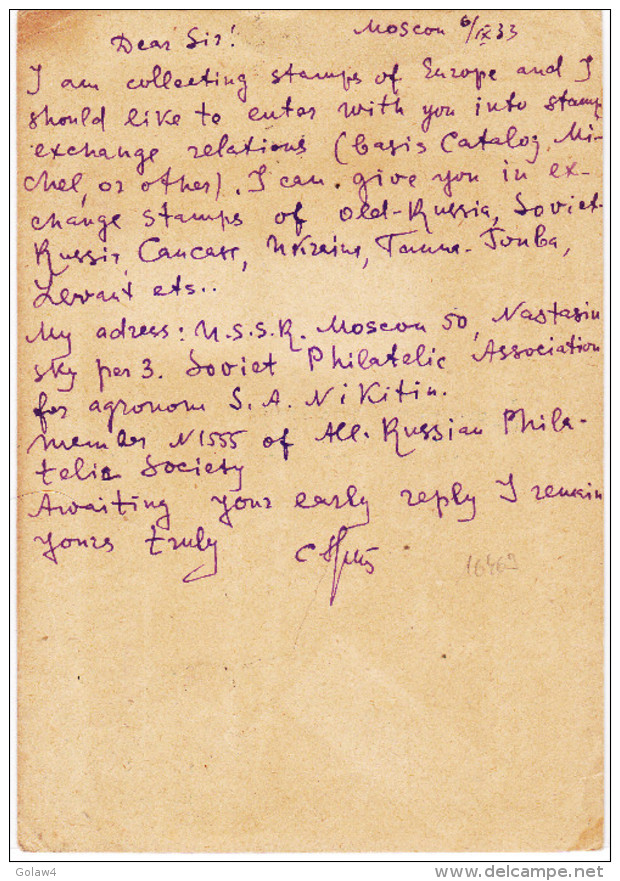 Moscou 6/IX 33
Dear Sir!
I am collecting stamps of Europe and I
should like to enter with you into stamp
exchange relations (basis Catalog. Mi-
chel, or other). I can give you in ex-
change stamps of old-Russia, Soviet-
Russia, Caucase, Ukraine, Tanna-Touba,
Levant ets..
My adress: U.S.S.R. Moscou 50, Nastasin
sky per 3. Soviet Philatelic Association
for agronom S. A. Nikitin.
member N1555 of All-Russian Phila-
telic Society
Awaiting your early reply I remain
yours truly
16469
Golaw4
www.delcampe.net